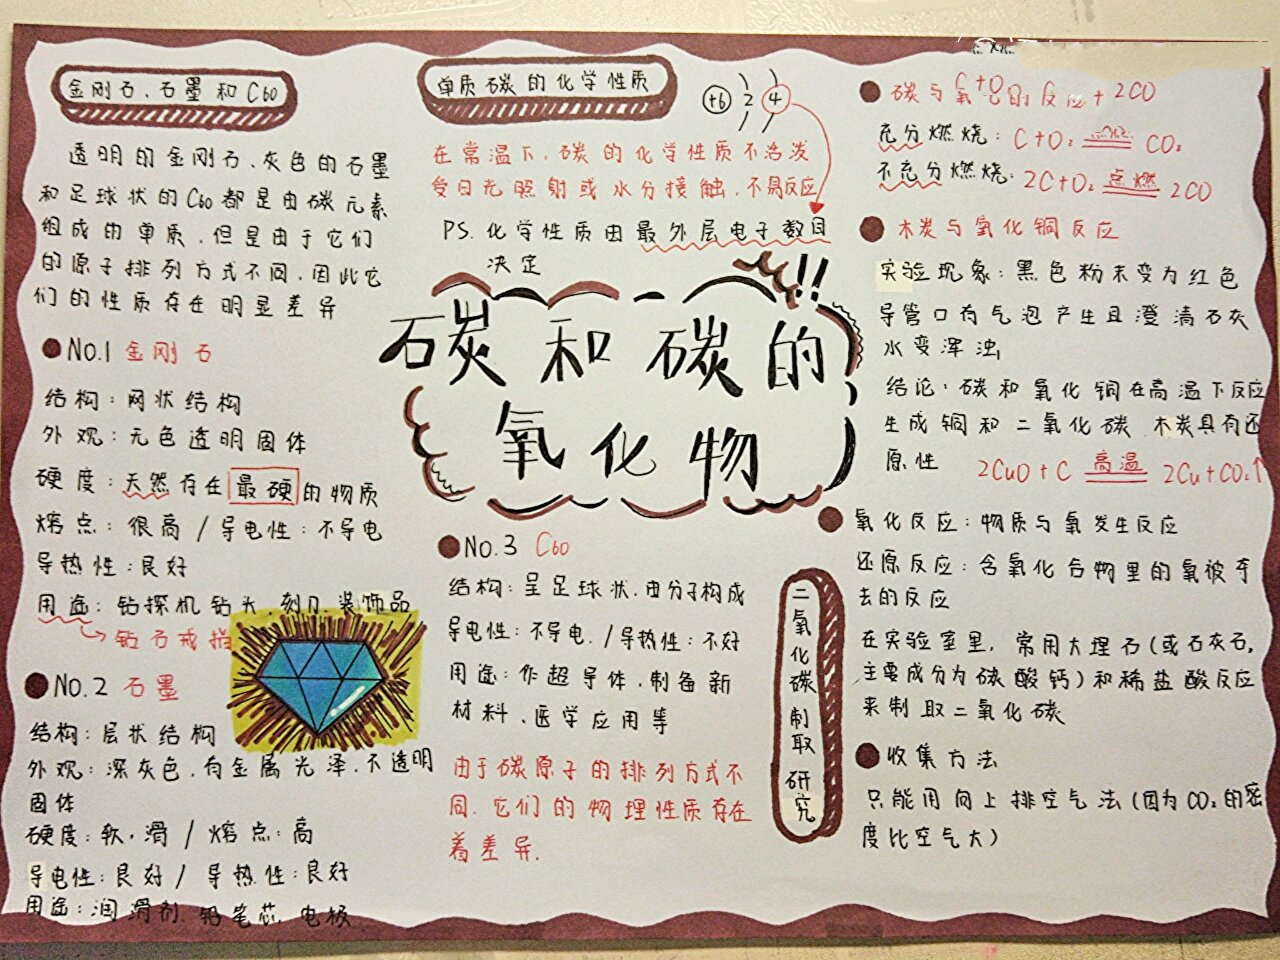 金刚石、石墨和C60
透明的金刚石、灰色的石墨
和足球状的C60都是由碳元素
组成的单质，但是由于它们
的原子排列方式不同，因此它
们的性质存在明显差异
No.1 金刚石
结构：网状结构
外观：无色透明固体
硬度：天然存在最硬的物质
熔点：很高 / 导电性：不导电
导热性：良好
用途：钻探机钻头、刻刀、装饰品
钻石戒指
No.2 石墨
结构：层状结构
外观：深灰色，有金属光泽，不透明
固体
硬度：软，滑 / 熔点：高
导电性：良好 / 导热性：良好
用途：润滑剂、铅笔芯、电极
单质碳的化学性质
+6 2 4
在常温下，碳的化学性质不活泼
受日光照射或水分接触，不易反应
PS. 化学性质由最外层电子数目
决定
石炭和碳的
氧化物
!!
No.3 C60
结构：呈足球状，由分子构成
导电性：不导电 / 导热性：不好
用途：作超导体，制备新
材料、医学应用等
由于碳原子的排列方式不
同，它们的物理性质存在
着差异.
二氧化碳制取研究
碳与氧气的反应
充分燃烧：C+O₂ 点燃 CO₂
不充分燃烧：2C+O₂ 点燃 2CO
木炭与氧化铜反应
实验现象：黑色粉末变为红色
导管口有气泡产生且澄清石灰
水变浑浊
结论：碳和氧化铜在高温下反应
生成铜和二氧化碳 木炭具有还
原性 2CuO+C 高温 2Cu+CO₂↑
氧化反应：物质与氧发生反应
还原反应：含氧化合物里的氧被夺
去的反应
在实验室里，常用大理石(或石灰石，
主要成分为碳酸钙)和稀盐酸反应
来制取二氧化碳
收集方法
只能用向上排空气法(因为CO₂的密
度比空气大)